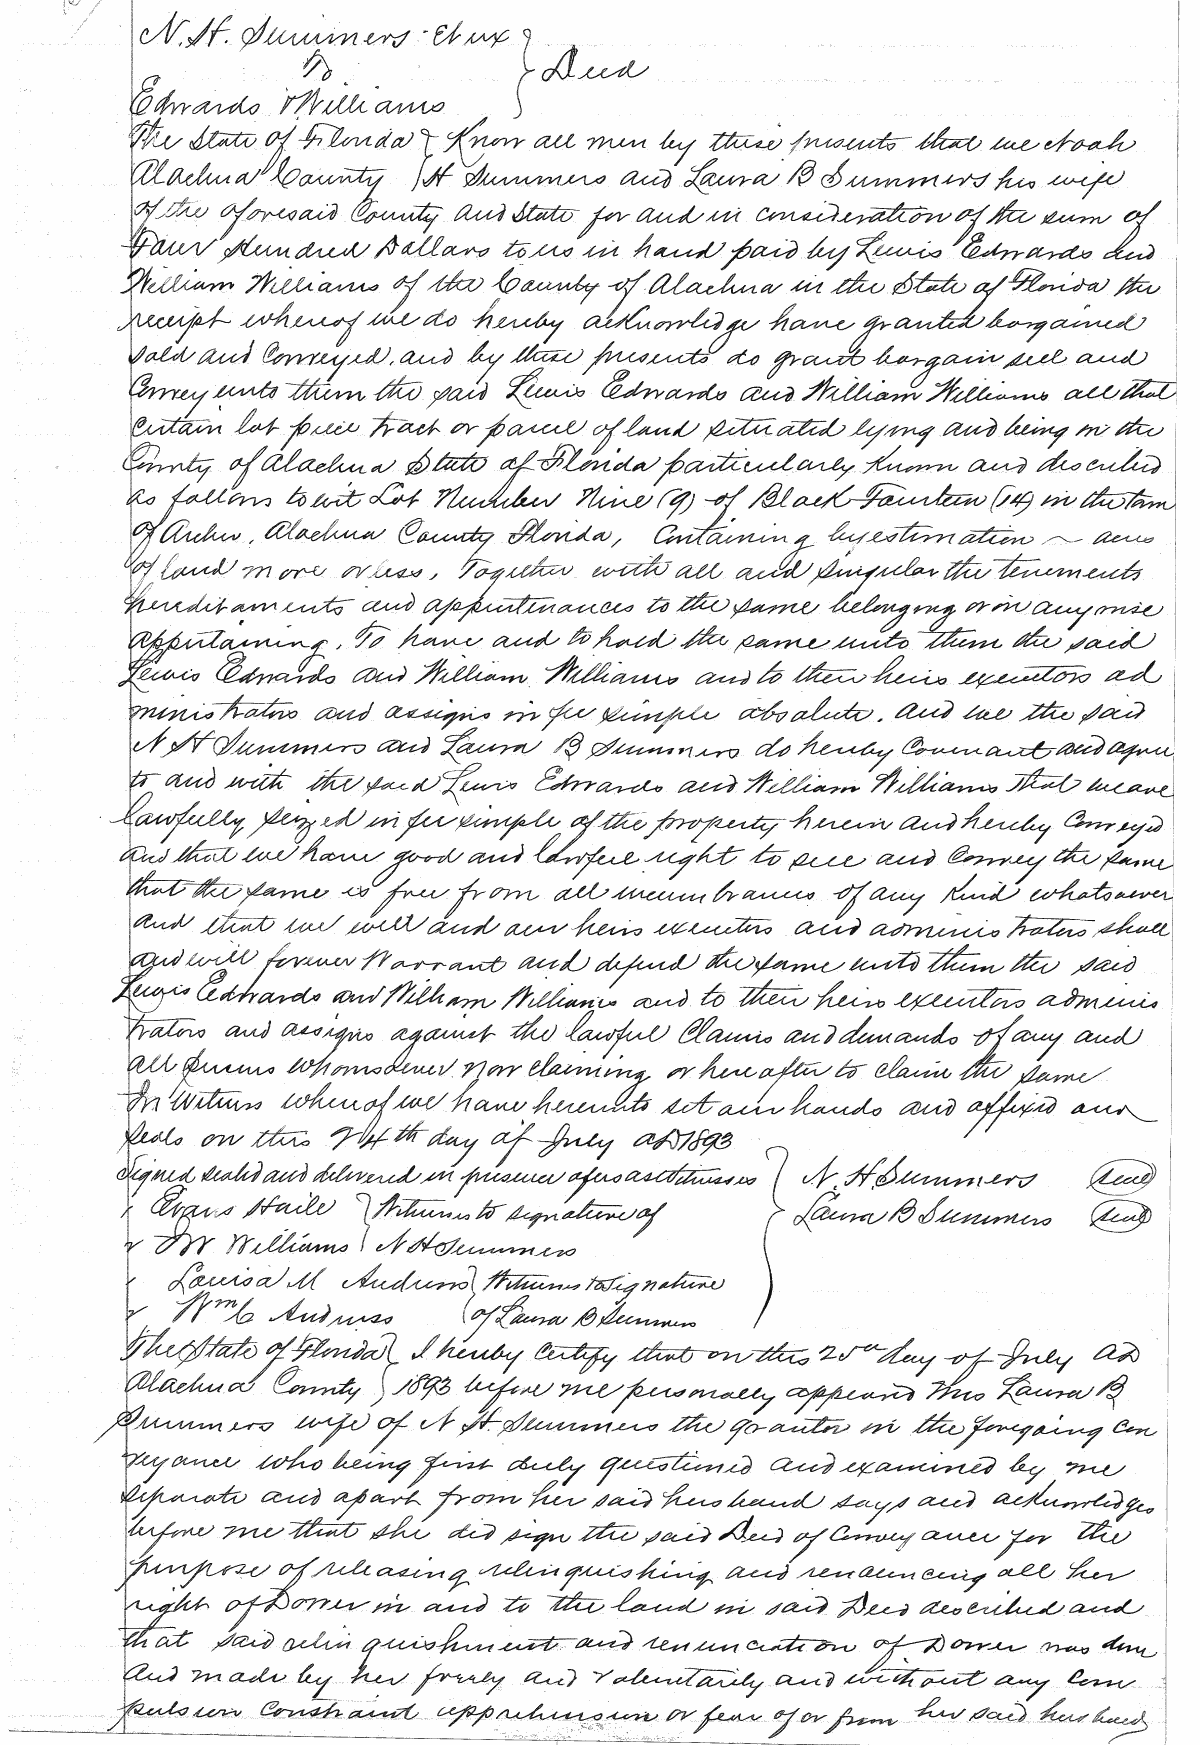 N. H. Summers et ux
To } Deed
Edwards & Williams
The State of Florida } Know all men by these presents that we Noah
Alachua County } H Summers and Laura B Summers his wife
of the aforesaid County and State for and in consideration of the sum of
Four Hundred Dollars to us in hand paid by Lewis Edwards and
William Williams of the County of Alachua in the State of Florida the
receipt whereof we do hereby acknowledge have granted bargained
sold and Conveyed, and by these presents do grant bargain sell and
Convey unto them the said Lewis Edwards and William Williams all that
certain lot piece tract or parcel of land situated lying and being in the
County of Alachua State of Florida particularly known and described
as follows to wit Lot Number Nine (9) of Block Fourteen (14) in the town
of Archer, Alachua County Florida, Containing by estimation ~ acres
of land more or less, Together with all and singular the tenements
hereditaments and appurtenances to the same belonging or in any wise
appertaining. To have and to hold the same unto them the said
Lewis Edwards and William Williams and to their heirs executors ad
ministrators and assigns in fee simple absolute. And we the said
N H Summers and Laura B Summers do hereby Covenant and agree
to and with the said Lewis Edwards and William Williams that we are
lawfully seized in fee simple of the property herein and hereby Conveyed
and that we have good and lawful right to sell and Convey the same
that the same is free from all incumbrances of any kind whatsoever
and that we will and our heirs executors and administrators shall
and will forever Warrant and defend the same unto them the said
Lewis Edwards and William Williams and to their heirs executors adminis
trators and assigns against the lawful Claims and demands of any and
all persons whomsoever now claiming or hereafter to claim the same
In Witness whereof we have hereunto set our hands and affixed our
seals on this 24th day of July AD 1893
Signed sealed and delivered in presence of us as Witnesses } N. H Summers Seal
Evans Haile } Witness to signature of Laura B Summers Seal
Williams } N H Summers
Louisa M Andruss } Witness to Signature
Wm C Andruss } of Laura B Summers
The State of Florida } I hereby Certify that on this 25th day of July AD
Alachua County } 1893 before me personally appeared Mrs Laura B
Summers wife of N H. Summers the grantor in the foregoing con
veyance who being first duly questioned and examined by me
separate and apart from her said husband says and acknowledges
before me that she did sign the said Deed of Conveyance for the
purpose of releasing relinquishing and renouncing all her
right of Dower in and to the land in said Deed described and
that said relinquishment and renunciation of Dower was done
and made by her freely and voluntarily and without any Com
pulsion Constraint apprehension or fear of or from her said husband